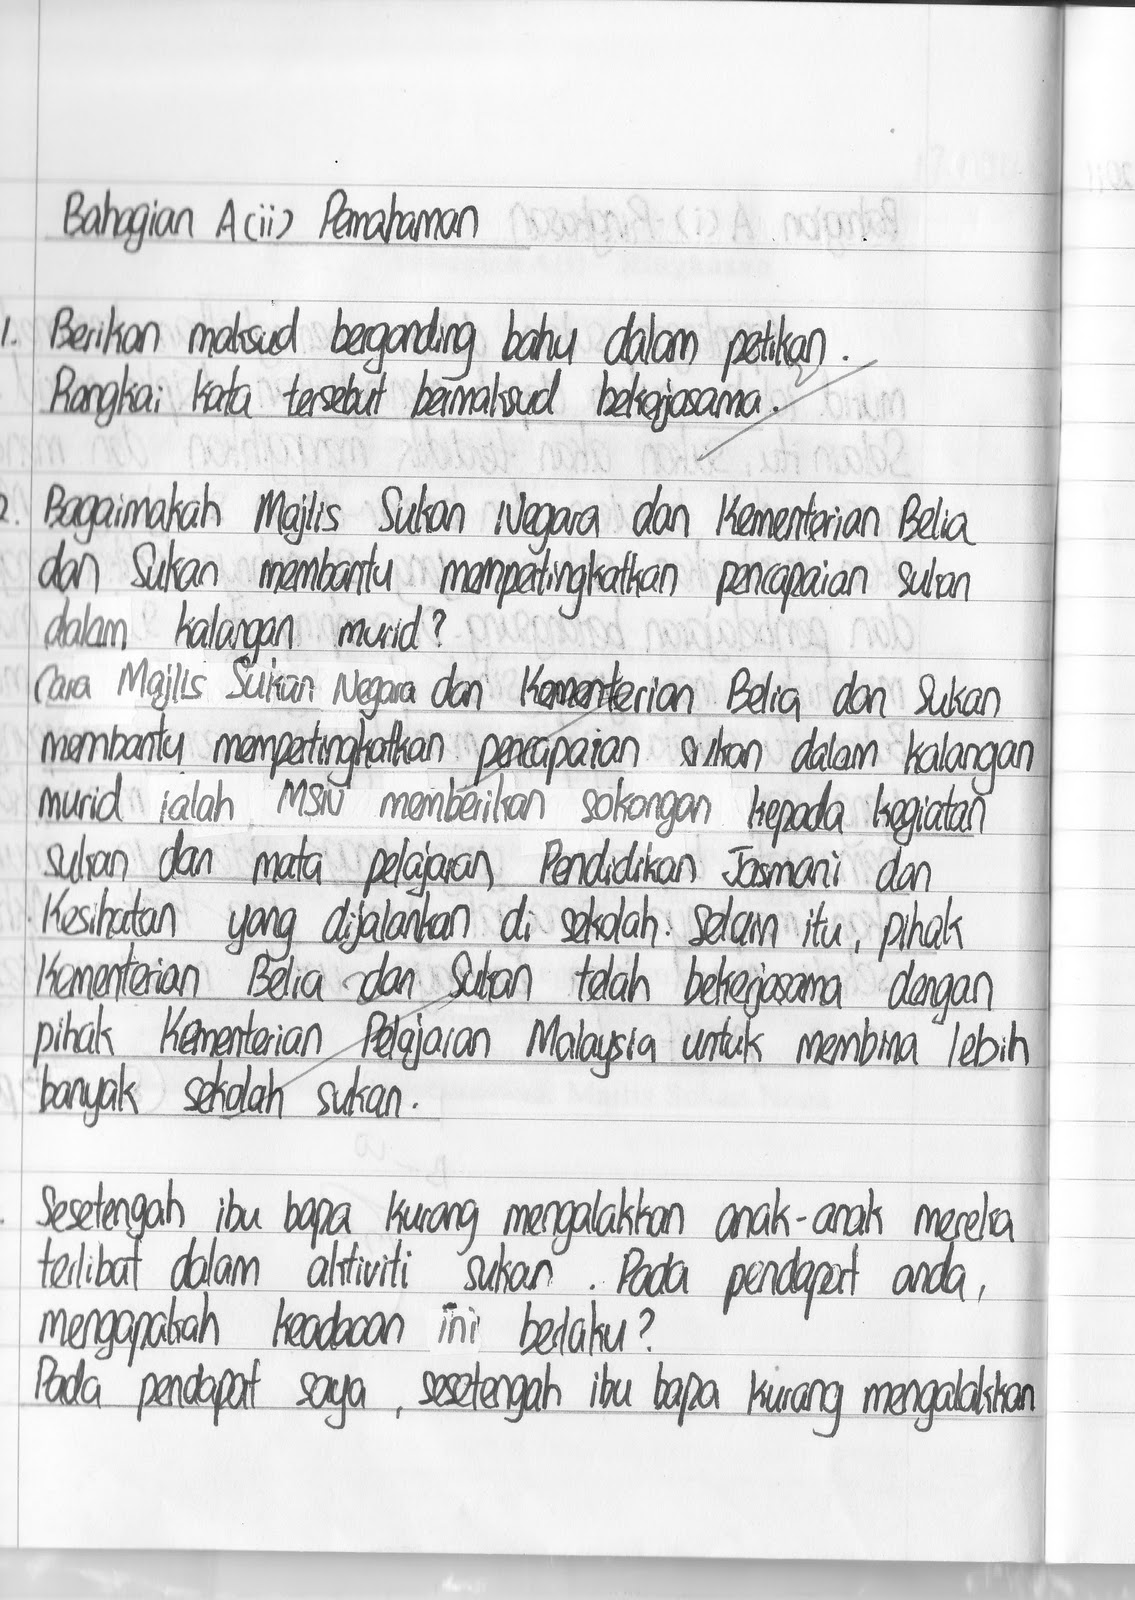 Bahagian A(ii) Pemahaman
1. Berikan maksud berganding bahu dalam petikan.
Rangkai kata tersebut bermaksud bekerjasama.
2. Bagaimakah Majlis Sukan Negara dan Kementerian Belia
dan Sukan membantu mempertingkatkan pencapaian sukan
dalam kalangan murid?
Cara Majlis Sukan Negara dan Kementerian Belia dan Sukan
membantu mempertingkatkan pencapaian sukan dalam kalangan
murid ialah MSN memberikan sokongan kepada kegiatan
sukan dan mata pelajaran Pendidikan Jasmani dan
Kesihatan yang dijalankan di sekolah. Selain itu, pihak
Kementerian Belia dan Sukan telah bekerjasama dengan
pihak Kementerian Pelajaran Malaysia untuk membina lebih
banyak sekolah sukan.
Sesetengah ibu bapa kurang mengalakkan anak-anak mereka
terlibat dalam aktiviti sukan. Pada pendapat anda,
mengapakah keadaan ini berlaku?
Pada pendapat saya, sesetengah ibu bapa kurang mengalakkan